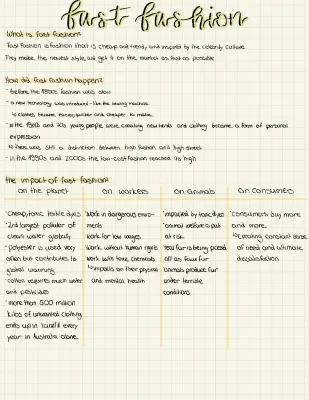 fast fashion
What is fast fashion?
fast fashion is fashion that is cheap and trendy, and inspired by the celebrity culture.
They make the newest style, and get it on the market as fast as possible
How did fast fashion happen?
- before the 1800s fashion was slow
- a new technology was introduced - like the sewing machine.
↳ clothes became easier, quicker and cheaper to make.
- in the 1960s and 70s young people were creating new trends and clothing became a form of personal
expression
↳ there was still a distinction between high fashion and high street
- in the 1990s and 2000s the low-cost fashion reached its high
the impact of fast fashion
on the planet
- cheap, toxic textile dyes
- 2nd largest polluter of
clean water globally
- polyester is used very
often but contributes to
global warming
- cotton requires much water
and pesticides
- more than 500 million
kilos of unwanted clothing
ends up in landfill every
year in Australia alone.
on workers
work in dangerous enviro-
ments
work for low wages
work without human rights
work with toxic chemicals
↳ impacts on their physical
and mental health
on animals
- impacted by toxic dyes
- animal welfare is put
at risk
- real fur is being passed
off as faux fur
animals produce fur
under terrible
conditions
on consumers
- consumers buy more
and more.
↳ creating constant sense
of need and ultimate
dissatisfaction